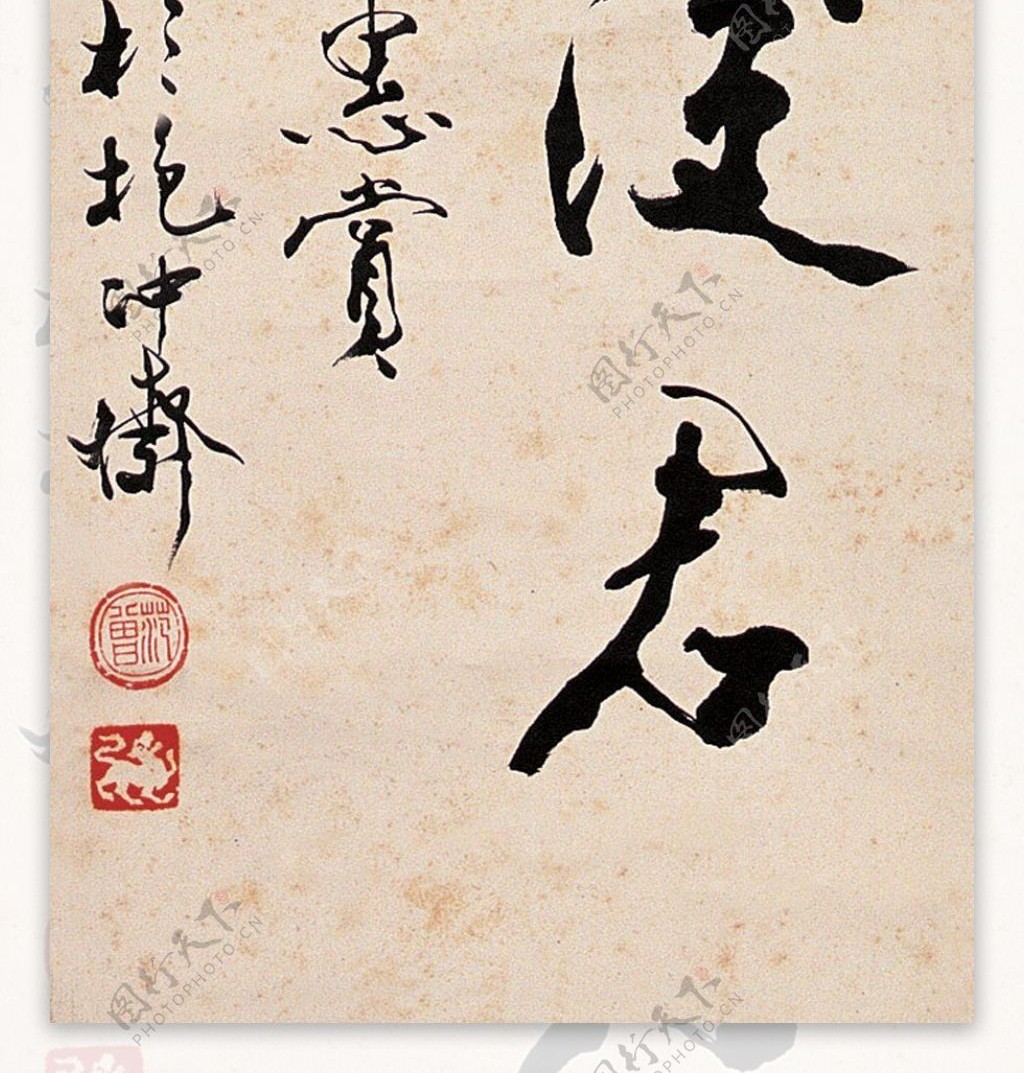 君
惠賞
於抱冲齋
范曾
图行天下 PHOTOPHOTO.CN
图行天下 PHOTOPHOTO.CN
图行天下 PHOTOPHOTO.CN
图行天下 PHOTOPHOTO.CN